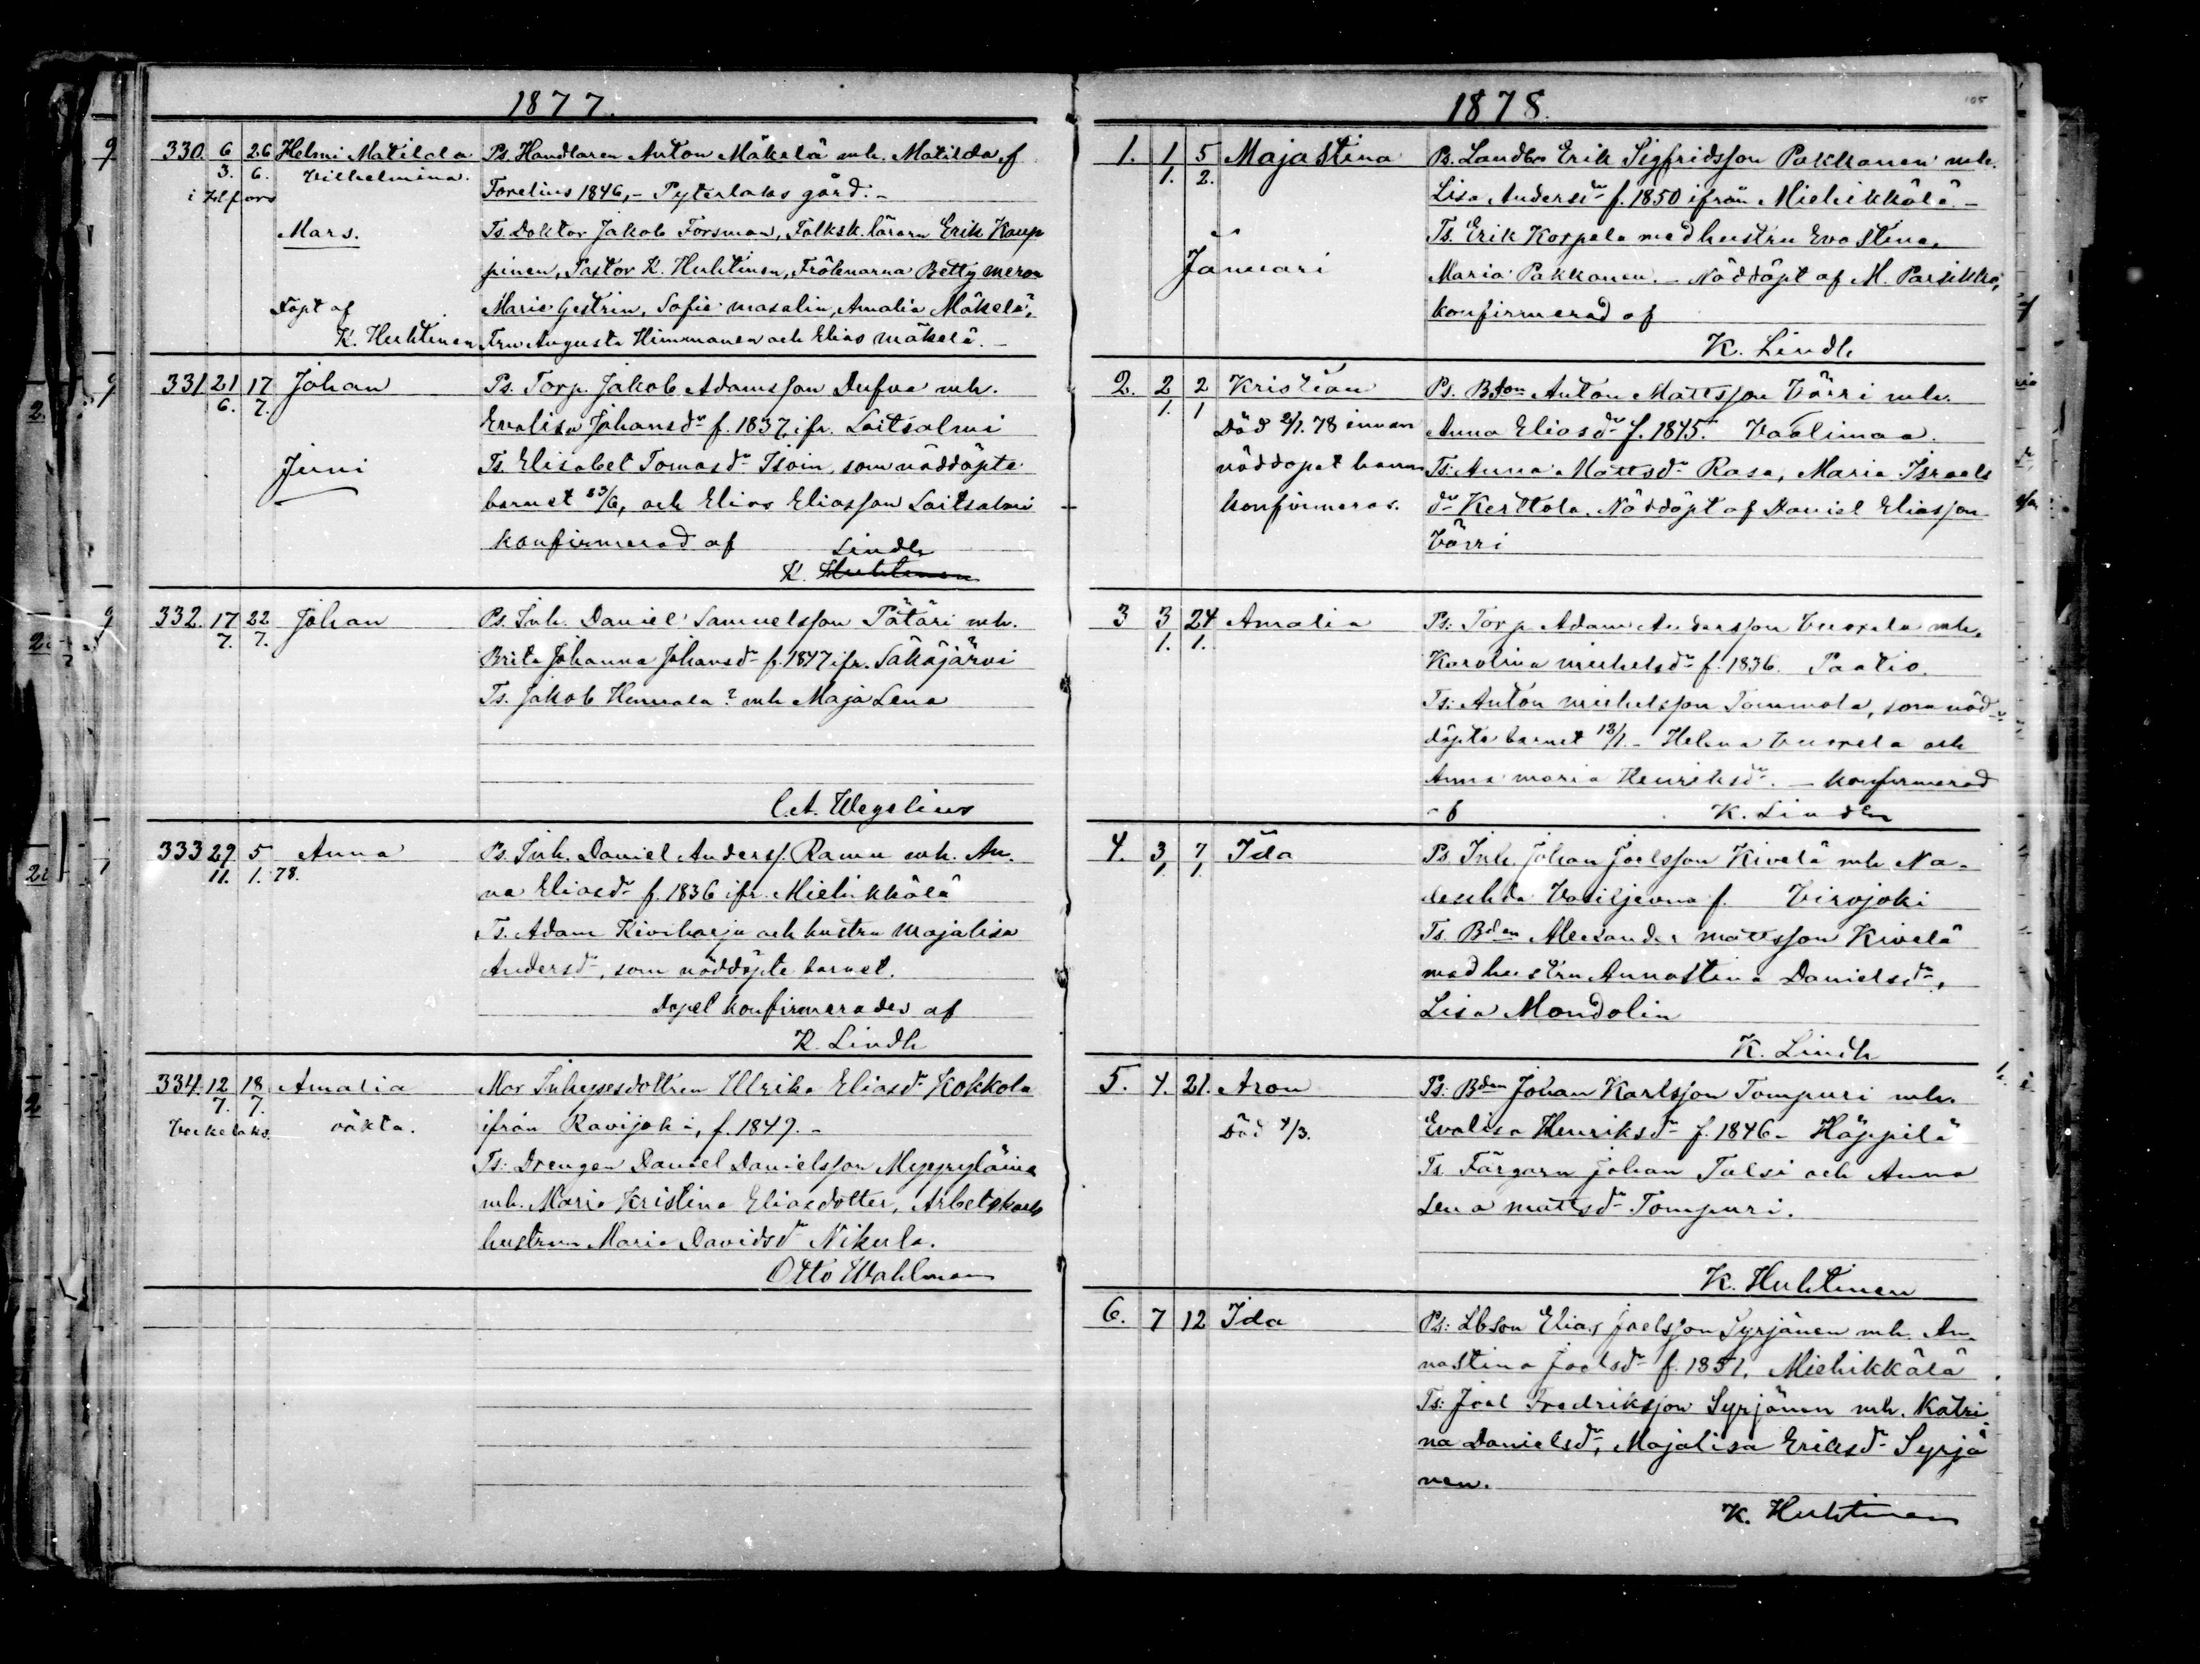 1877.
330. 6 26 Helmi Matilda Ps. Handlaren Anton Mäkelä mh. Matilda f.
3. 6. Vilhelmina. Forelius 1846, - Pyterlaks gård. -
i H:fors
Mars. Ts. Doktor Jakob Forsman, Folksk. lärarn Erik Kaup
pinen, Pastor K. Huhtinen, Frökenarna Betty
Döpt af Marie Gestrin, Sofie Masalin, Amalia Mäkelä,
K. Huhtinen Fru Augusta Himmanen och Elias Mäkelä. -
331. 21 17 Johan Ps. Torp. Jakob Adamsson Dufva mh.
6. 7. Evalisa Johansdr f. 1837, ifr. Laitsalmi
Juni Ts. Elisabet Tomasdr Isoin, som nöddöpte
barnet 23/6, och Elias Eliasson Laitsalmi
konfirmerad af Lindh
K. Huhtinen
332. 17 22 Johan Ps. Inh. Daniel Samuelsson Pätäri mh.
7. 7. Brita Johanna Johansdr f. 1847 ifr. Säkäjärvi
Ts. Jakob ? mh Maja Lena
C.A. Wegelius
333 29 5 Anna Ps. Inh. Daniel Anders. Ramu mh. An-
11. 1. 78. na Eliasdr f. 1836 ifr. Miehikkälä
Ts. Adam Kiviharju och hustru Majalisa
Andersdr, som nöddöpte barnet.
Dopet konfirmerades af
K. Lindh
334. 12 18 Amalia Mor Inhysesdottren Ulrika Eliasdr Kokkola
7. 7. oäkta. ifrån Ravijoki, f. 1849. -
Vekelaks. Ts: Drengen Daniel Danielsson
mh. Maria Kristina Eliasdotter, Arbetskarls
hustrun Maria Davidsdr Nikula.
Otto Wahlman
1878. 105
1. 1 5 Majastina Ps. Landbo Erik Sigfridsson Pakkanen mh.
1. 2. Lisa Andersdr f. 1850 ifrån Miehikkälä. -
Ts. Erik Korpela med hustru Eva Stina,
Januari Maria Pakkanen. - Nöddöpt af M. Parikko,
konfirmerad af
K. Lindh
2. 2 2 Kristian Ps. Bdon Anton Mattsson Värri mh.
1. 1 Död 2/1. 78 innan Anna Eliasdr f. 1845. Vaalimaa.
nöddopet hann Ts: Anna Mattsdr Rasa, Maria Israels
konfirmeras. dr Kerttola. Nöddöpt af Daniel Eliasson
Värri
3 3 24 Amalia Ps: Torp. Adam Andersson Vuorela mh.
1. 1. Karolina Mickelsdr f. 1836. Paatio.
Ts: Anton Mickelsson Tommola, som nöd-
döpte barnet 13/1. - Helena Vuorela och
Anna Maria Henriksdr. - Konfirmerad
af K. Lindh
4. 3 7 Ida Ps. Inh. Johan Joelsson Kivelä mh. Na-
1. 1. deschda Vasiljevna f. Virojoki
Ts. Bden Alexander Mattsson Kivelä
med hustru Annastina Danielsdr,
Lisa Mondolin
K. Lindh
5. 4. 21. Aron Ps: Bden Johan Karlsson Tompuri mh.
Död 4/3. Evalisa Henriksdr f. 1846 - Häppilä
Ts. Färgarn Johan Talsi och Anna
Lena Mattsdr Tompuri.
K. Huhtinen
6. 7 12 Ida Ps: Lbson Elias Joelsson Syrjänen mh. An-
nastina Joelsdr f. 1851. Miehikkälä
Ts: Joel Fredriksson Syrjänen mh. Katri
na Danielsdr, Majalisa Eriksdr Syrjä
nen.
K. Huhtinen